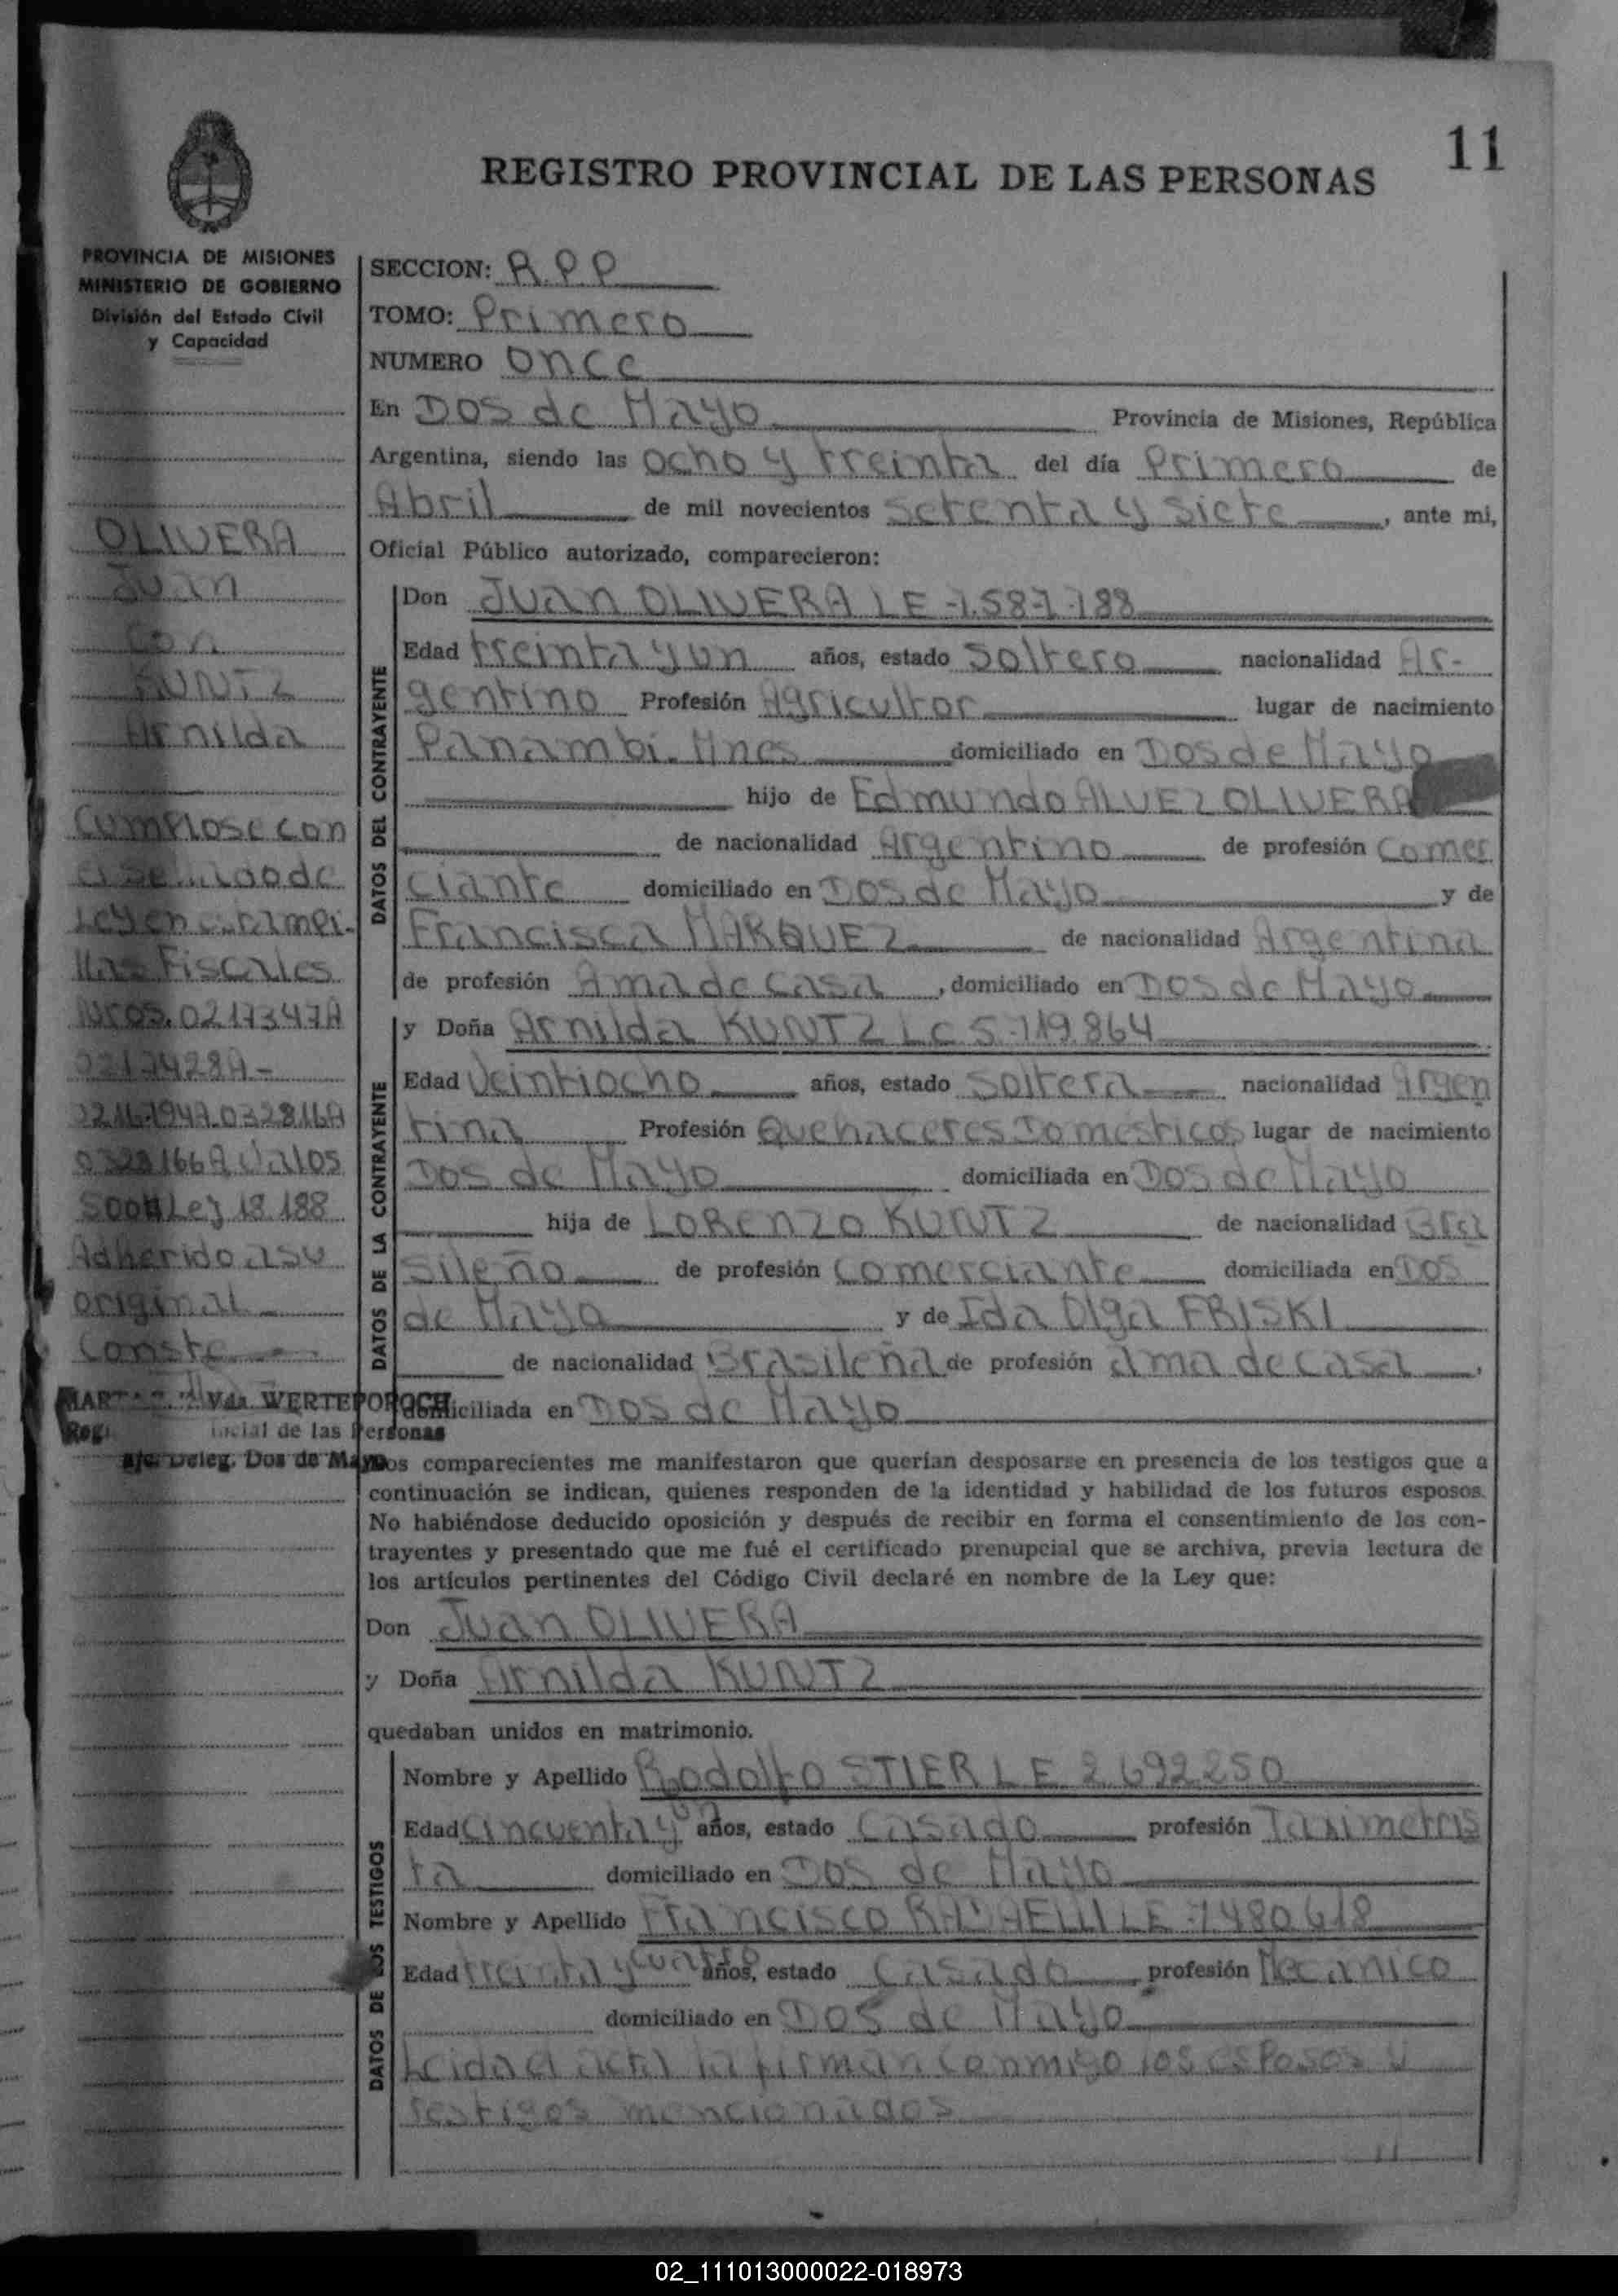 11
REGISTRO PROVINCIAL DE LAS PERSONAS
PROVINCIA DE MISIONES
MINISTERIO DE GOBIERNO
División del Estado Civil
y Capacidad
OLIVERA
Juan
Con
KUNTZ
Arnilda
Cumplose con
el sellado de
Ley en estampi-
llas Fiscales
Nros. 0217347A
Ley 18.188
Adherido a su
original
Conste
Vda. WERTEPOROCH
de las Personas
Deleg. Dos de Mayo
SECCION: R.P.P
TOMO: Primero
NUMERO Once
En Dos de Mayo Provincia de Misiones, República
Argentina, siendo las ocho y treinta del día Primero de
Abril de mil novecientos setenta y siete, ante mi,
Oficial Público autorizado, comparecieron:
DATOS DEL CONTRAYENTE
Don Juan OLIVERA LE-7.587.188
Edad treinta y un años, estado Soltero nacionalidad Ar-
gentino Profesión Agricultor lugar de nacimiento
Panambi-Mnes domiciliado en Dos de Mayo
hijo de Edmundo ALVEZ OLIVERA
de nacionalidad Argentino de profesión Comer
ciante domiciliado en Dos de Mayo y de
Francisca MARQUEZ de nacionalidad Argentina
de profesión Ama de casa, domiciliado en Dos de Mayo
DATOS DE LA CONTRAYENTE
y Doña Arnilda KUNTZ LC 5.719.864
Edad Veintiocho años, estado Soltera nacionalidad Argen
tina Profesión Quehaceres Domesticos lugar de nacimiento
Dos de Mayo domiciliada en Dos de Mayo
hija de LORENZO KUNTZ de nacionalidad Bra
sileño de profesión Comerciante domiciliada en Dos
de Mayo y de Ida Olga FRISKI
de nacionalidad Brasileña de profesión ama de casa,
domiciliada en Dos de Mayo
Los comparecientes me manifestaron que querían desposarse en presencia de los testigos que a
continuación se indican, quienes responden de la identidad y habilidad de los futuros esposos.
No habiéndose deducido oposición y después de recibir en forma el consentimiento de los con-
trayentes y presentado que me fué el certificado prenupcial que se archiva, previa lectura de
los artículos pertinentes del Código Civil declaré en nombre de la Ley que:
Don Juan OLIVERA
y Doña Arnilda KUNTZ
quedaban unidos en matrimonio.
DATOS DE LOS TESTIGOS
Nombre y Apellido Rodolfo STIER LE 2.692.250
Edad Cincuenta y un años, estado Casado profesión Taximetris
ta domiciliado en Dos de Mayo
Nombre y Apellido Francisco LE 7.480.618
Edad treinta y cuatro años, estado Casado profesión Mecanico
domiciliado en Dos de Mayo
Leida el acta la firman conmigo los esposos y
testigos mencionados
02_111013000022-018973